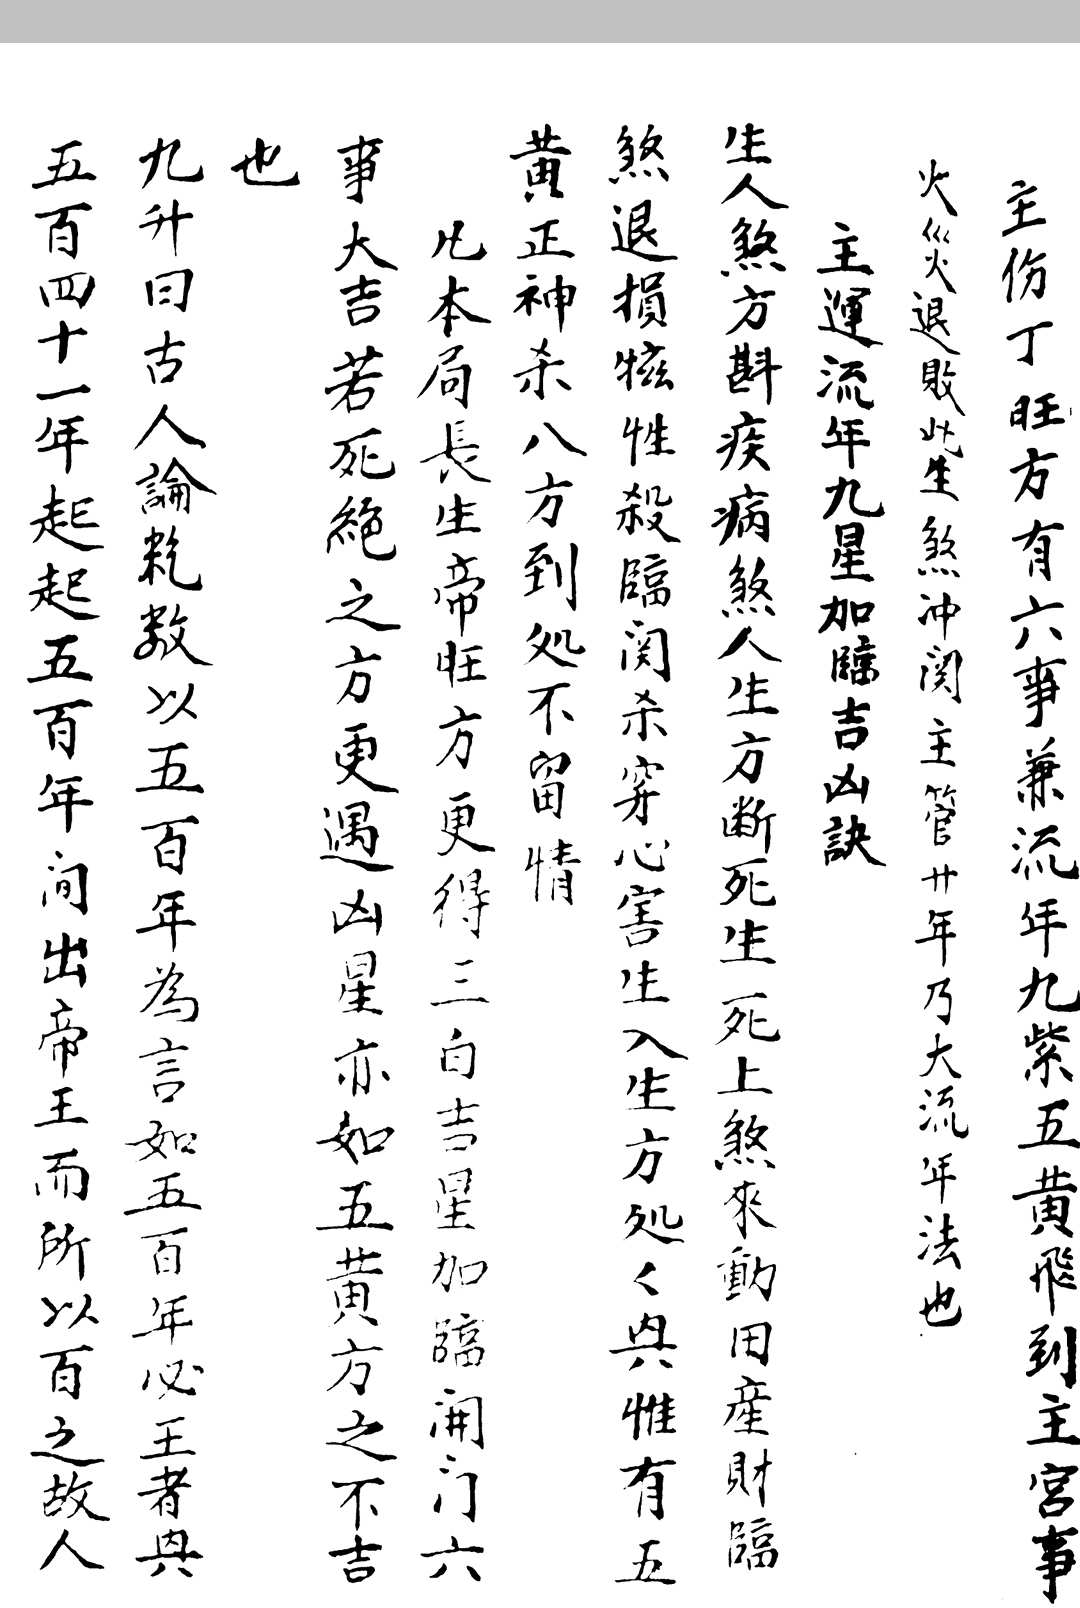 主伤丁旺方有六事兼流年九紫五黄飛到主宫事
火災火退敗此生煞冲関主管廿年乃大流年法也
主運流年九星加臨吉凶訣
生人煞方斟疾病煞人生方断死生死上煞來動田産財臨
煞退損犠性殺臨関杀穿心害生入生方処々與惟有五
黄正神杀八方到処不留情
凡本局長生帝旺方更得三白吉星加臨開门六
事大吉若死絶之方更遇凶星亦如五黄方之不吉
也
九升曰古人論乾数以五百年為言如五百年必王者與
五百四十一年起起五百年间出帝王而所以百之故人